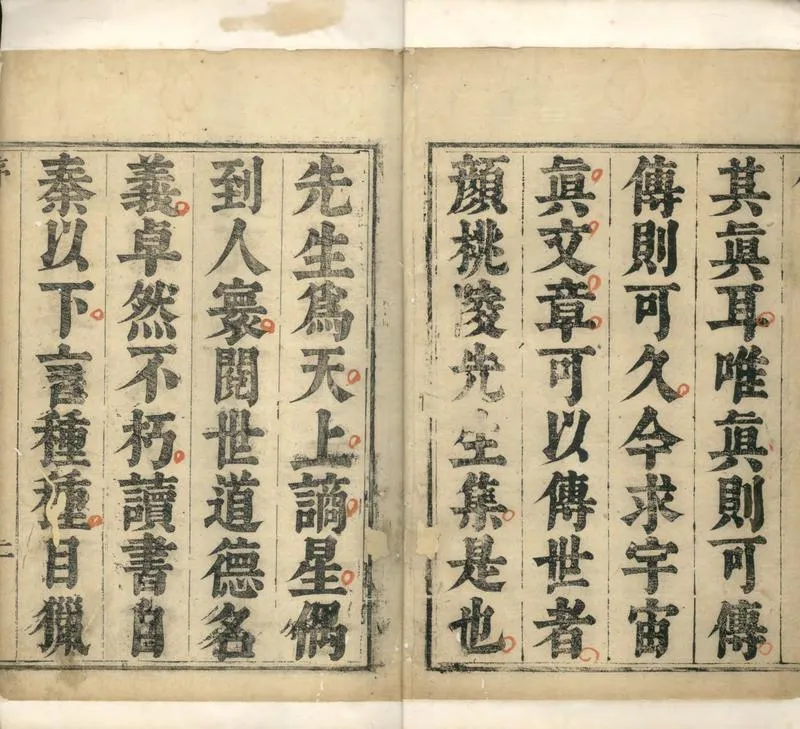 其眞耳唯眞則可傳
傳則可久今求宇宙
眞文章可以傳世者
顔桃陵先生集是也
先生爲天上謫星偶
到人寰閱世道德名
義卓然不朽讀書自
秦以下言種種目獵